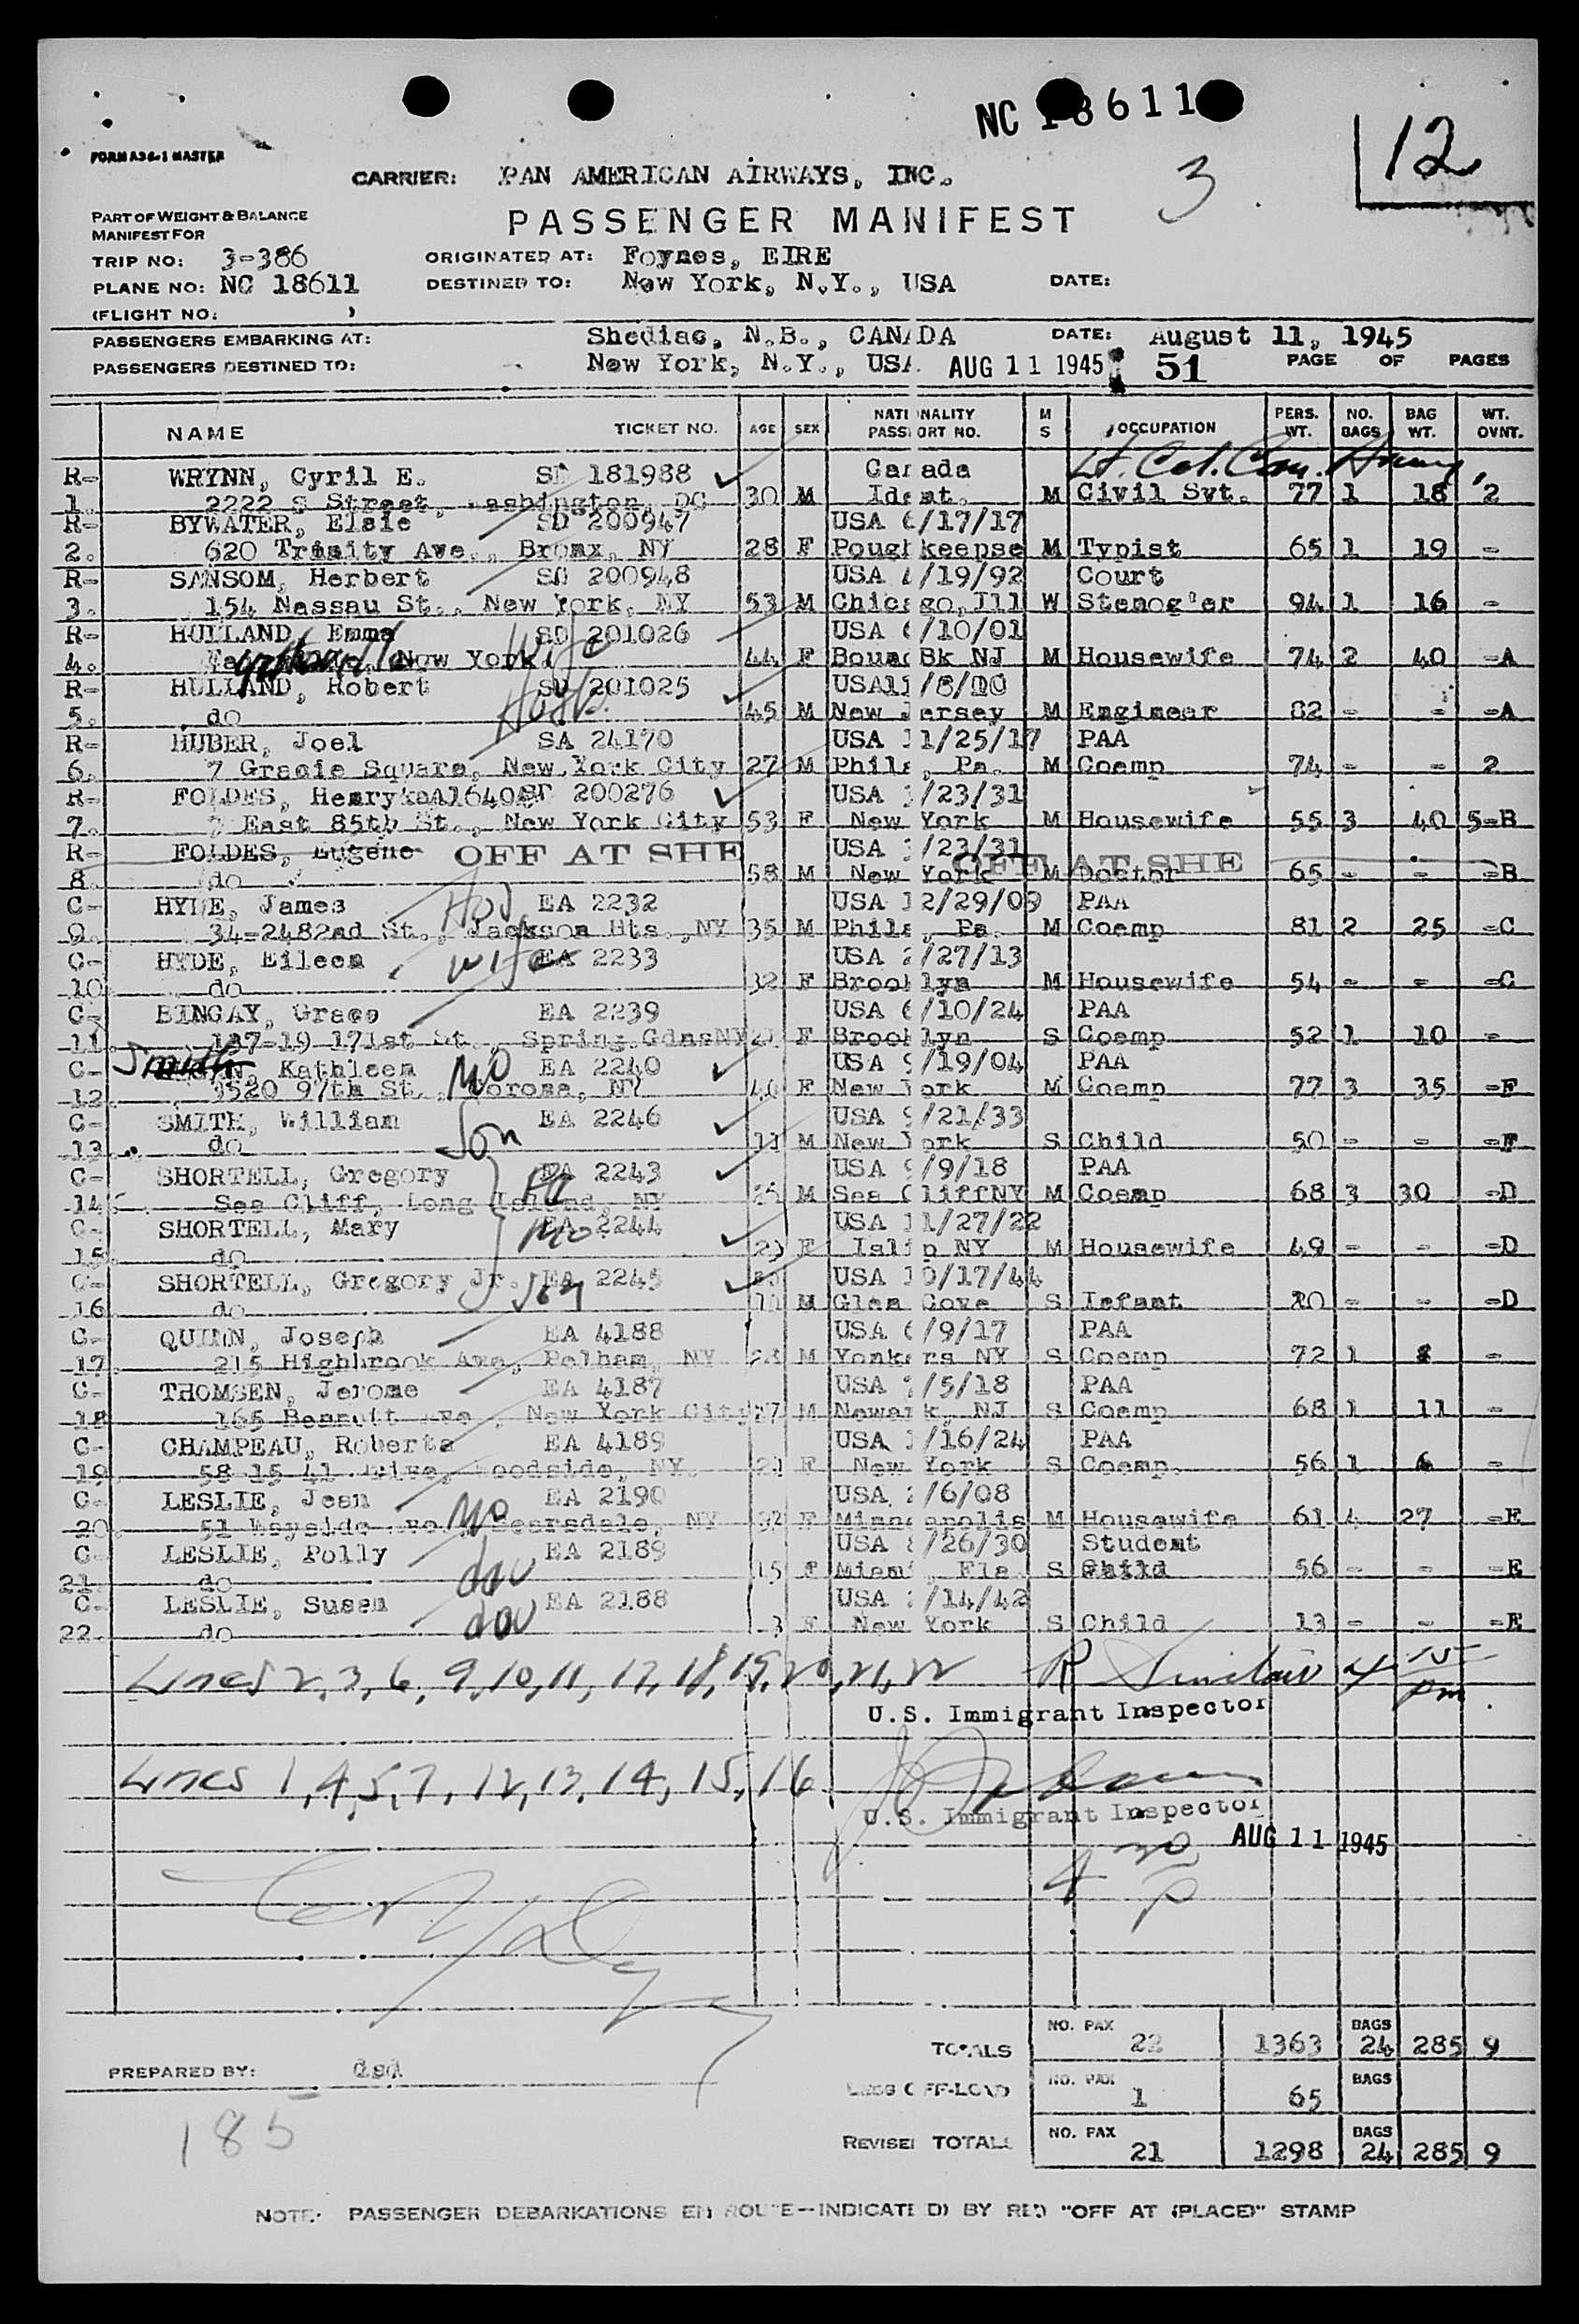 NC 18611
12
FORM A36-1 MASTER
CARRIER: PAN AMERICAN AIRWAYS, INC.
3
PART OF WEIGHT & BALANCE
MANIFEST FOR
PASSENGER MANIFEST
TRIP NO: 3-386 ORIGINATED AT: Foynes, EIRE
PLANE NO: NC 18611 DESTINED TO: New York, N.Y., USA DATE:
(FLIGHT NO: )
PASSENGERS EMBARKING AT: Shediac, N.B., CANADA DATE: August 11, 1945
PASSENGERS DESTINED TO: New York, N.Y., USA AUG 11 1945 51 PAGE OF PAGES
NAME TICKET NO. AGE SEX NATIONALITY PASSPORT NO. M S OCCUPATION PERS. WT. NO. BAGS BAG WT. WT. OVNT.
R- WRYNN, Cyril E. SD 181988 Canada Lt. Col. Can. Army
1. 2222 S Street, Washington, DC 30 M Ident. M Civil Svt. 77 1 18 2
R- BYWATER, Elsie SD 200947 USA 6/17/17
2. 620 Trinity Ave., Bronx, NY 28 F Poughkeepse M Typist 65 1 19 -
R- SANSOM, Herbert SD 200948 USA /19/92 Court
3. 154 Nassau St., New York, NY 53 M Chicago, Ill W Stenog'er 94 1 16 -
R- HULLAND, Emma SD 201026 Wife USA 6/10/01
4. New York 44 F Bound Bk NJ M Housewife 74 2 40 -A
R- HULLAND, Robert SD 201025 Husb. USA 11/8/00
5. do 45 M New Jersey M Engineer 82 - - -A
R- HUBER, Joel SA 24170 USA 11/25/17 PAA
6. 7 Gracie Square, New York City 27 M Phila, Pa. M Coemp 74 - - 2
R- FOLDES, Henryka A1640 SD 200276 USA /23/31
7. East 85th St., New York City 53 F New York M Housewife 55 3 40 5-B
R- FOLDES, Eugene OFF AT SHE USA /23/31 OFF AT SHE
8. do 58 M New York M Doctor 65 - - -B
C- HYDE, James Hus EA 2232 USA 12/29/09 PAA
9. 34-2482nd St., Jackson Hts., NY 35 M Phila, Pa. M Coemp 81 2 25 -C
C- HYDE, Eileen wife EA 2233 USA 2/27/13
10. do 32 F Brooklyn M Housewife 54 - - -C
C- BINGAY, Grace EA 2239 USA 6/10/24 PAA
11. 137-19 171st St., Spring.GdnsNY F Brooklyn S Coemp 52 1 10 -
C- Smith, Kathleen Mo EA 2240 USA 9/19/04 PAA
12. 3520 97th St., Corona, NY 40 F New York M Coemp 77 3 35 -F
C- SMITH, William Son EA 2246 USA 9/21/33
13. do 11 M New York S Child 50 - - -F
C- SHORTELL, Gregory Fa EA 2243 USA 9/9/18 PAA
14. Sea Cliff, Long Island, NY M Sea CliffNY M Coemp 68 3 30 -D
C- SHORTELL, Mary Mo EA 2244 USA 11/27/22
15. do F Islip NY M Housewife 49 - - -D
C- SHORTELL, Gregory Jr. Son EA 2245 USA 10/17/44
16. do 10 M Glen Cove S Infant 20 - - -D
C- QUINN, Joseph EA 4188 USA 6/9/17 PAA
17. 215 Highbrook Ave, Pelham, NY 28 M Yonkers NY S Coemp 72 1 8 -
C- THOMSEN, Jerome EA 4187 USA /5/18 PAA
18. 165 Bennett Ave, New York City 27 M Newark, NJ S Coemp 68 1 11 -
C- CHAMPEAU, Roberta EA 4189 USA /16/24 PAA
19. 58-15 41 Drive, Woodside, NY. 21 F New York S Coemp. 56 1 6 -
C- LESLIE, Jean Mo EA 2190 USA 2/6/08
20. 51 Wayside Scarsdale, NY 37 F Minneapolis M Housewife 61 4 27 -E
C- LESLIE, Polly dau EA 2189 USA 8/26/30 Student
21. do 15 F Miami, Fla. S Child 56 - - -E
C- LESLIE, Susan dau EA 2188 USA /14/42
22. do 3 F New York S Child 13 - - -E
Lines 2,3,6,9,10,11,17,18,19,20,21,22 R Sinclair 4 15 pm
U.S. Immigrant Inspector
Lines 1,4,5,7,12,13,14,15,16
U.S. Immigrant Inspector
AUG 11 1945
4 30 P
TOTALS NO. PAX 22 1363 BAGS 24 285 9
PREPARED BY: dsd
LESS OFF-LOAD NO. PAX 1 65 BAGS
185
REVISED TOTALS NO. PAX 21 1298 BAGS 24 285 9
NOTE: PASSENGER DEBARKATIONS EN ROUTE--INDICATED BY RED "OFF AT (PLACE)" STAMP